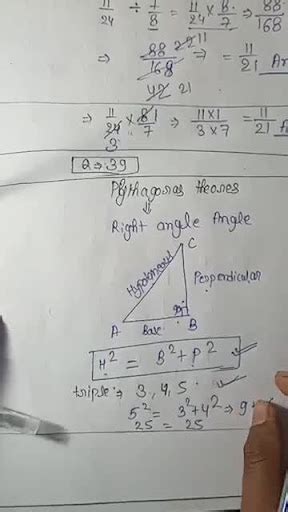 11/24 ÷ 7/8 = 11/24 × 8/7 ⇒ 88/168
⇒ 88 22 11 / 168 42 21 ⇒ = 11/21
⇒ 11/24 3 × 8 1/7 ⇒ 11×1/3×7 = 11/21
Q⇒39
Pythagoras theores
Right angle Angle
C
Hypotoneous
Perpendicular
90°
A
Base
B
H² = B² + P²
triple:⇒ 3, 4, 5
5² = 3² + 4² ⇒ 9
25 = 25